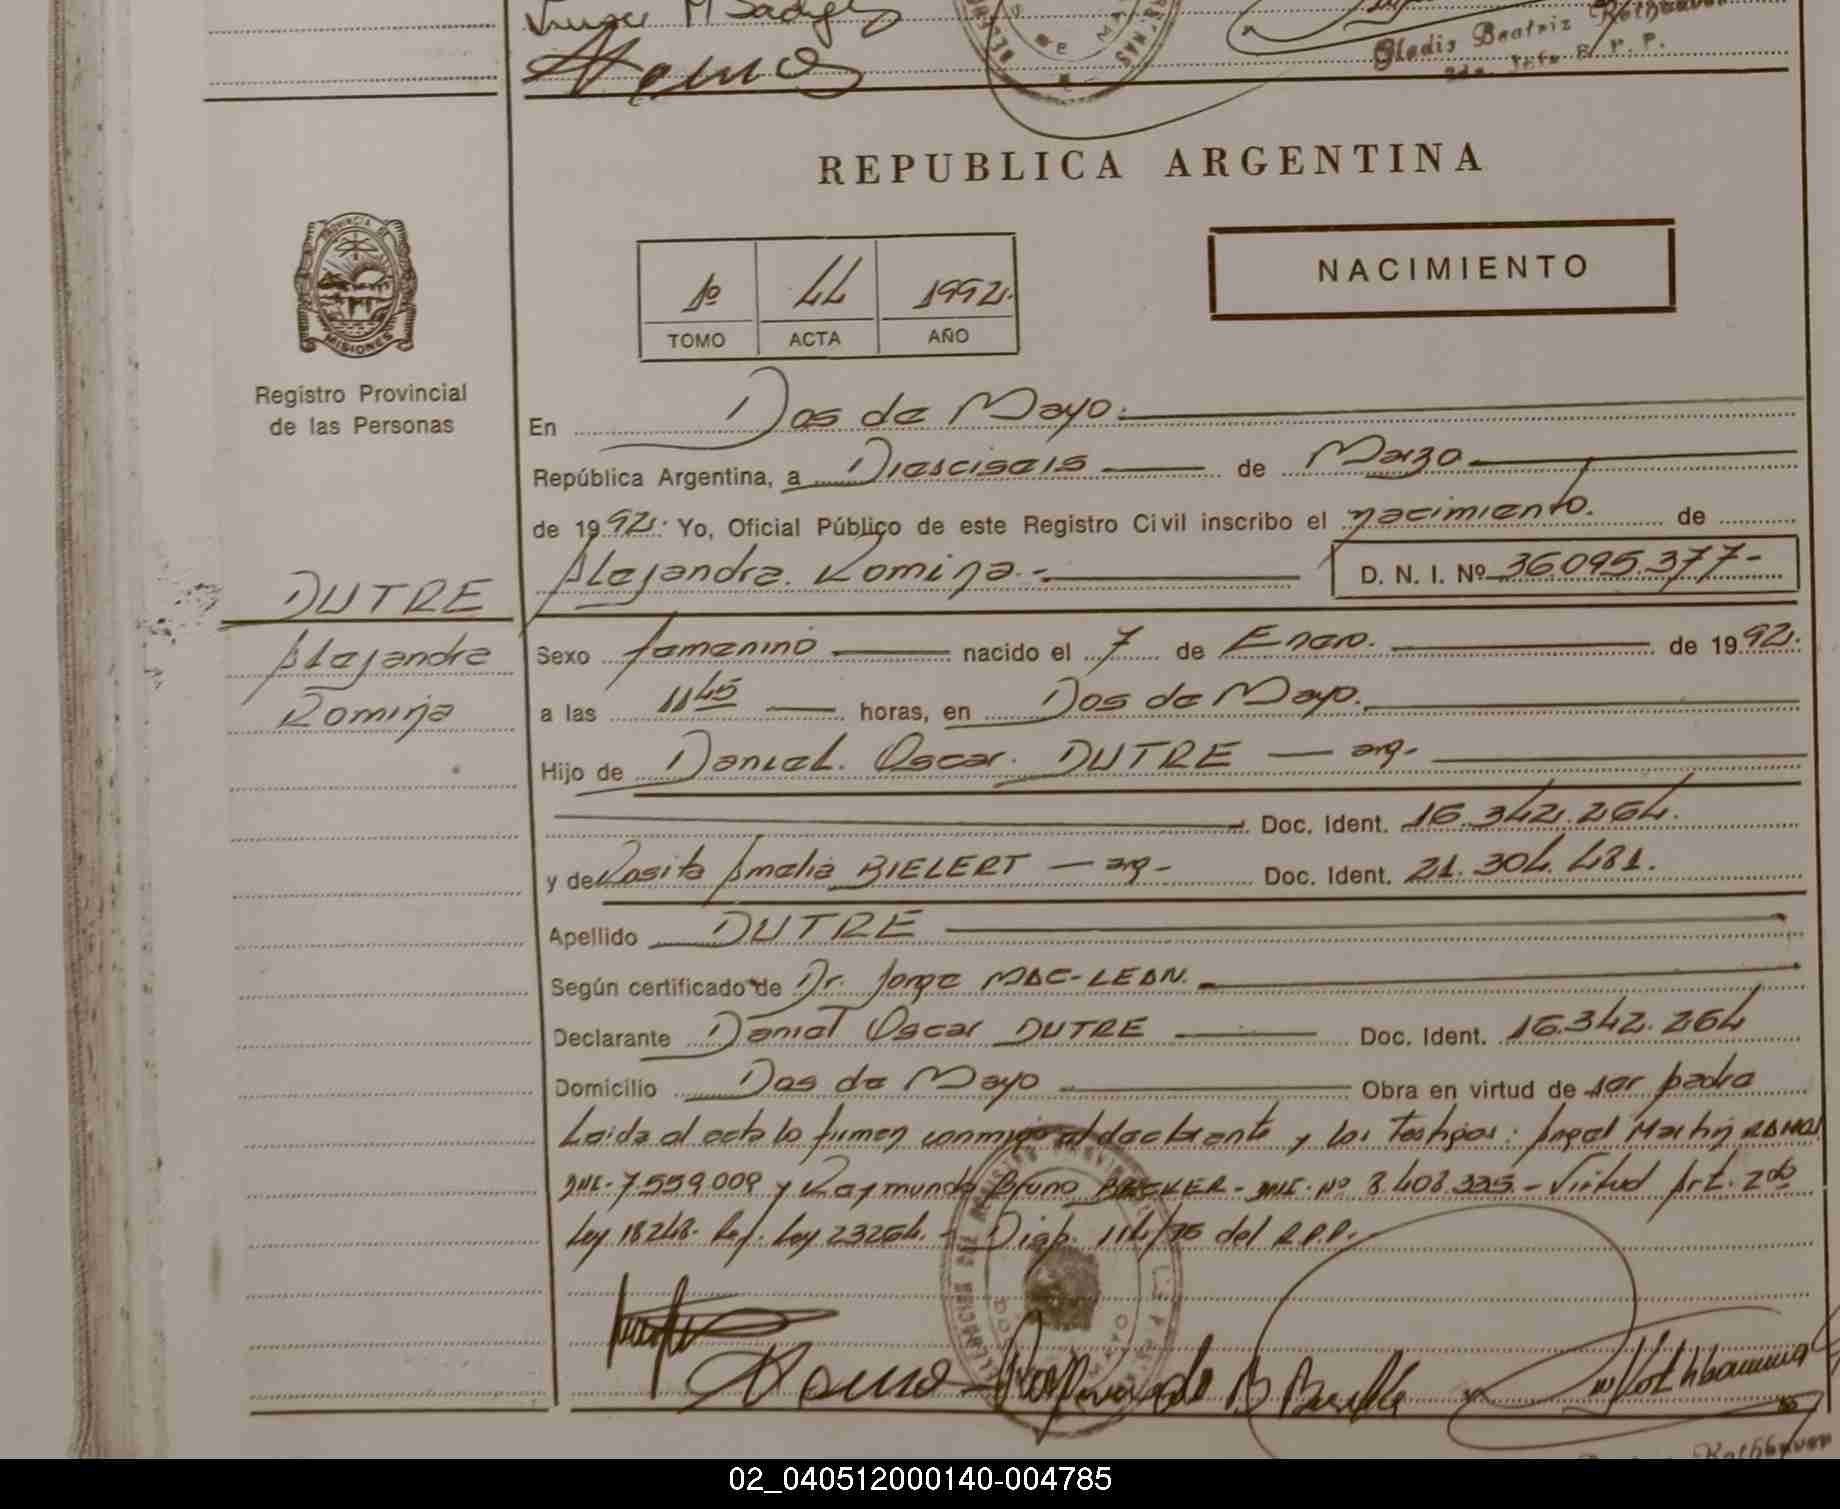 Gladis Beatriz Rothbauer
2da. Jefe R. P. P.
REPUBLICA ARGENTINA
PROVINCIA DE
MISIONES
Registro Provincial
de las Personas
1º 44 1992.
TOMO ACTA AÑO
NACIMIENTO
En Dos de Mayo.
República Argentina, a Dieciseis de Marzo
de 1992. Yo, Oficial Público de este Registro Civil inscribo el nacimiento. de
Alejandra Romina.- D. N. I. Nº 36.095.377-
DUTRE
Alejandra
Romina
Sexo femenino nacido el 7 de Enero. de 1992.
a las 11 45 horas, en Dos de Mayo.
Hijo de Daniel Oscar DUTRE — arg.
Doc. Ident. 16.342.264.
y de Rosita Amelia BIELERT — arg - Doc. Ident. 21.304.481.
Apellido DUTRE
Según certificado de Dr. Jorge MAC-LEAN.
Declarante Daniel Oscar DUTRE Doc. Ident. 16.342.264
Domicilio Dos de Mayo Obra en virtud de ser padre
Leida el acta lo firman conmigo el declarante y los testigos: Angel Martin RAMOS
DNI- 7.559.009 y Raymundo Bruno BECKER - DNI- Nº 8.408.335 - Virtud Art. 2do
Ley 18248. Ley 23264. - Disp. 114/76 del R.P.P.
02_040512000140-004785